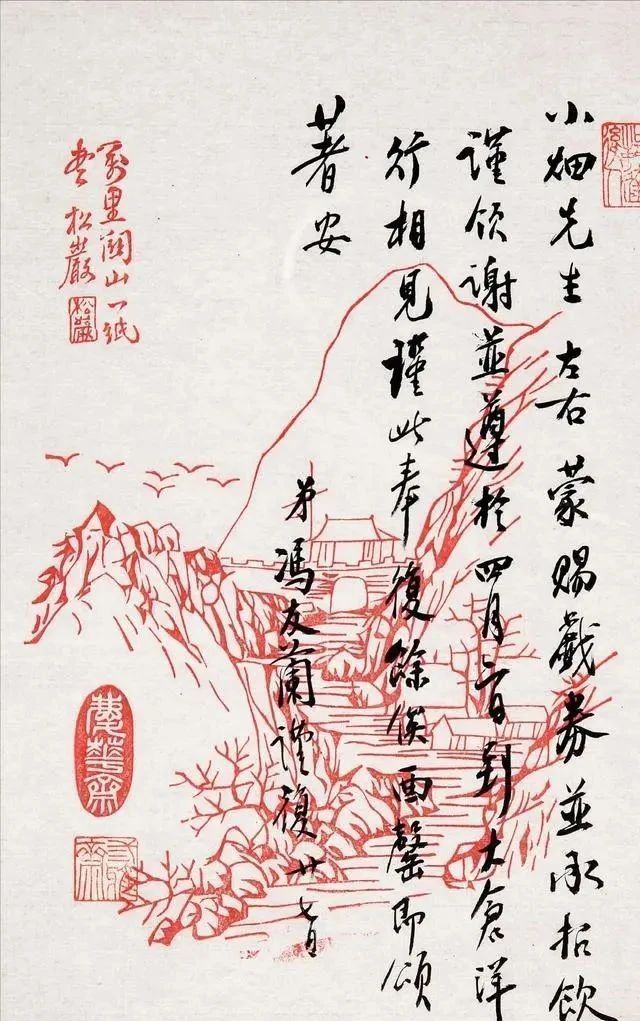 小畑先生左右蒙賜戲券並承招飲
謹領謝並遵於四月一日到大倉洋
行相見謹此奉復餘俟面罄即頌
著安
弟馮友蘭謹復廿七日
萬里關山一紙
書 松巖
松巖
慶華齋